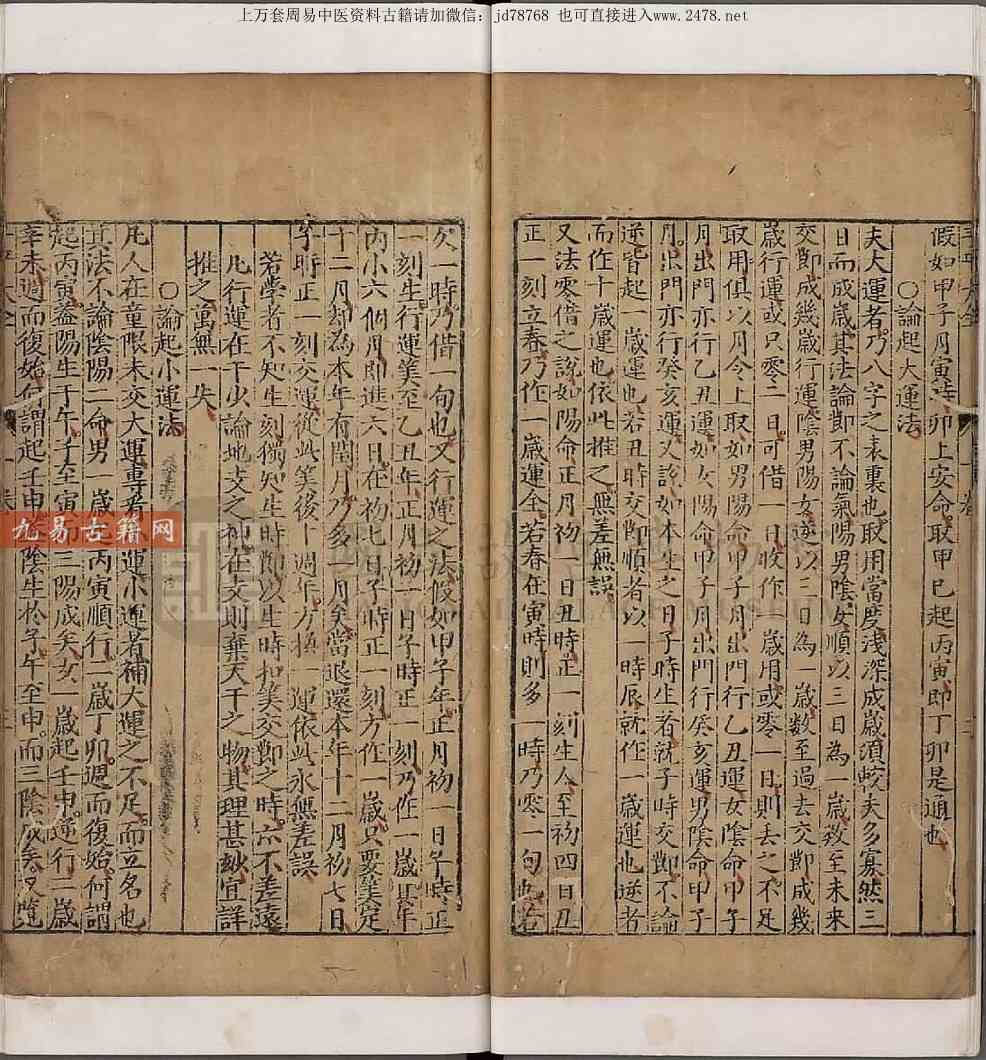 上万套周易中医资料古籍请加微信：jd78768 也可直接进入www.2478.net
假如甲子月寅時卯上安命取甲己起丙寅即丁卯是通也
○論起大運法
夫大運者乃八字之表裏也取用當度淺深成歲須較夫多寡然三
日而成歲其法論節不論氣陽男陰女順以三日為一歲数至未來
交節成幾歲行運陰男陽女逆以三日為一歲數至過去交節成幾
歲行運或只零二日可借一日收作一歲用或零一日則丢之不足
取用俱以月令上取如男陽命甲子月出門行乙丑運女陰命甲子
月出門亦行乙丑運如女陽命甲子月出門行癸亥運男陰命甲子
月出門亦行癸亥運又說如本生之日子時生者就子時交節不論
逆皆起一歲運也若丑時交節順者以一時辰就作一歲運也逆者
而作十歲運也依此推之無差無誤
又法零借之說如陽命正月初一日丑時正一刻生人至初四日丑
正一刻立春乃作一歲運全若春在寅時則多一時乃零一旬也若
欠一時乃借一旬也又行運之法假如甲子年正月初一日子時正
一刻生行運筭至乙丑年正月初一日子時正一刻乃作一歲其年
内小六個月即進六日在初七日子時正一刻方作一歲只要筭定
十二月却為本年有閏月乃多一月矣當退還本年十二月初七日
子時正一刻交運從此筭後十週年方換一運依此永無差誤
若學者不知生刻獨知生時節以生時扣筭交節之時亦不差遠
凡行運在干少論地支之神在支則棄天干之物其理甚妙宜詳
推之萬無一失
○論起小運法
凡人在童限未交大運專看小運小運者補大運之不足而立名也
其法不論陰陽二命男一歲起丙寅順行二歲丁卯週而復始何謂
起丙寅蓋陽生于午子至寅而三陽成矣女一歲起壬申逆行二歲
辛未週而復始何謂起壬申陰生於子午至申而三陰成矣又覧
九易古籍网